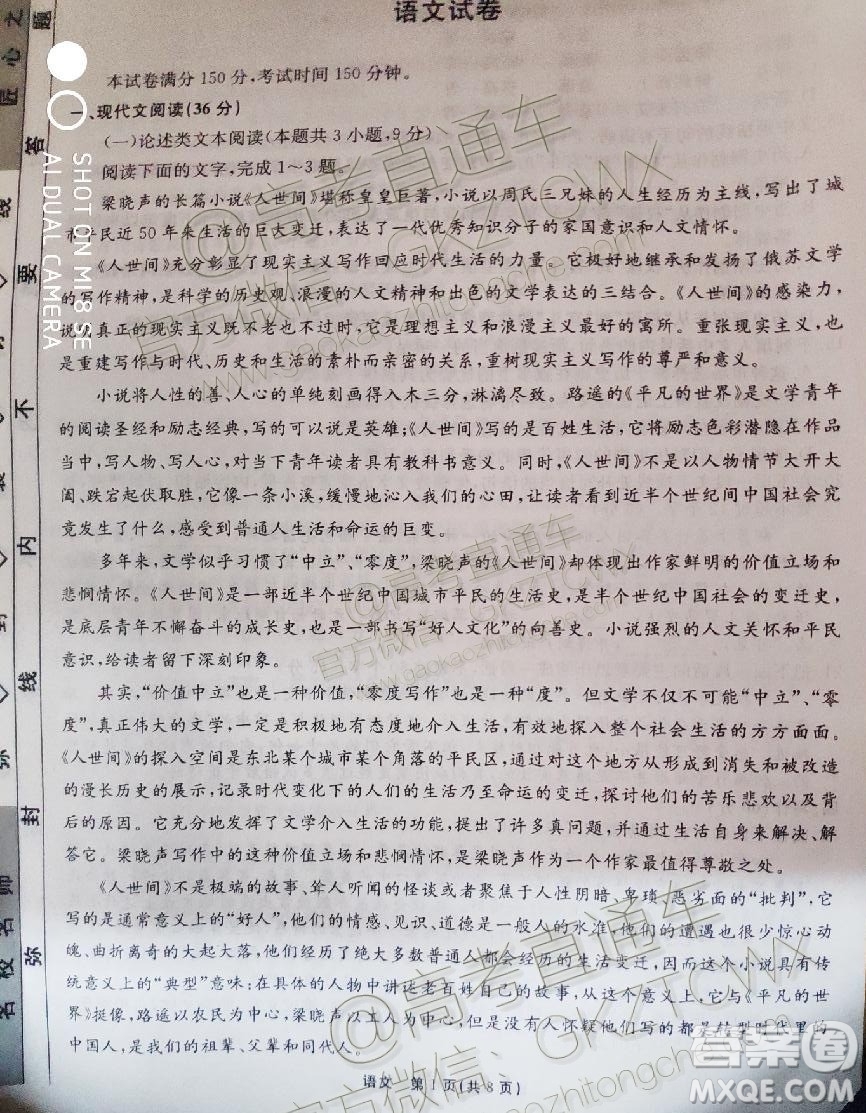 语文试卷
本试卷满分 150 分，考试时间 150 分钟。
一、现代文阅读(36 分)
(一)论述类文本阅读(本题共 3 小题，9 分)
阅读下面的文字，完成 1～3 题。
梁晓声的长篇小说《人世间》堪称皇皇巨著，小说以周氏三兄妹的人生经历为主线，写出了城
市平民近 50 年来生活的巨大变迁，表达了一代优秀知识分子的家国意识和人文情怀。
《人世间》充分彰显了现实主义写作回应时代生活的力量。它极好地继承和发扬了俄苏文学
的写作精神，是科学的历史观、浪漫的人文精神和出色的文学表达的三结合。《人世间》的感染力，
说明真正的现实主义既不老也不过时，它是理想主义和浪漫主义最好的寓所。重张现实主义，也
是重建写作与时代、历史和生活的素朴而亲密的关系，重树现实主义写作的尊严和意义。
小说将人性的善、人心的单纯刻画得入木三分，淋漓尽致。路遥的《平凡的世界》是文学青年
的阅读圣经和励志经典，写的可以说是英雄；《人世间》写的是百姓生活，它将励志色彩潜隐在作品
当中，写人物、写人心，对当下青年读者具有教科书意义。同时，《人世间》不是以人物情节大开大
阖、跌宕起伏取胜，它像一条小溪，缓慢地沁入我们的心田，让读者看到近半个世纪间中国社会究
竟发生了什么，感受到普通人生活和命运的巨变。
多年来，文学似乎习惯了“中立”、“零度”，梁晓声的《人世间》却体现出作家鲜明的价值立场和
悲悯情怀。《人世间》是一部近半个世纪中国城市平民的生活史，是半个世纪中国社会的变迁史，
是底层青年不懈奋斗的成长史，也是一部书写“好人文化”的向善史。小说强烈的人文关怀和平民
意识，给读者留下深刻印象。
其实，“价值中立”也是一种价值，“零度写作”也是一种“度”。但文学不仅不可能“中立”、“零
度”，真正伟大的文学，一定是积极地有态度地介入生活，有效地探入整个社会生活的方方面面。
《人世间》的探入空间是东北某个城市某个角落的平民区，通过对这个地方从形成到消失和被改造
的漫长历史的展示，记录时代变化下的人们的生活乃至命运的变迁，探讨他们的苦乐悲欢以及背
后的原因。它充分地发挥了文学介入生活的功能，提出了许多真问题，并通过生活自身来解决、解
答它。梁晓声写作中的这种价值立场和悲悯情怀，是梁晓声作为一个作家最值得尊敬之处。
《人世间》不是极端的故事、耸人听闻的怪谈或者聚焦于人性阴暗、卑琐、恶劣面的“批判”，它
写的是通常意义上的“好人”，他们的情感、见识、道德是一般人的水准，他们的遭遇也很少惊心动
魄、曲折离奇的大起大落，他们经历了绝大多数普通人都会经历的生活变迁，因而这个小说具有传
统意义上的“典型”意味：在具体的人物中讲述老百姓自己的故事，从这个意义上，它与《平凡的世
界》挺像，路遥以农民为中心，梁晓声以工人为中心，但是没有人怀疑他们写的都是转型时代里的
中国人，是我们的祖辈、父辈和同代人。
语文 第 1 页(共 8 页)
匠心之题
答
要
不
内
线
封
弥
名校名师
SHOT ON MI 8 SE
AI DUAL CAMERA
@高考直通车
官方微信：GKZTCWX
www.gaokaozhitongche.com
答案圈
MXQE.COM